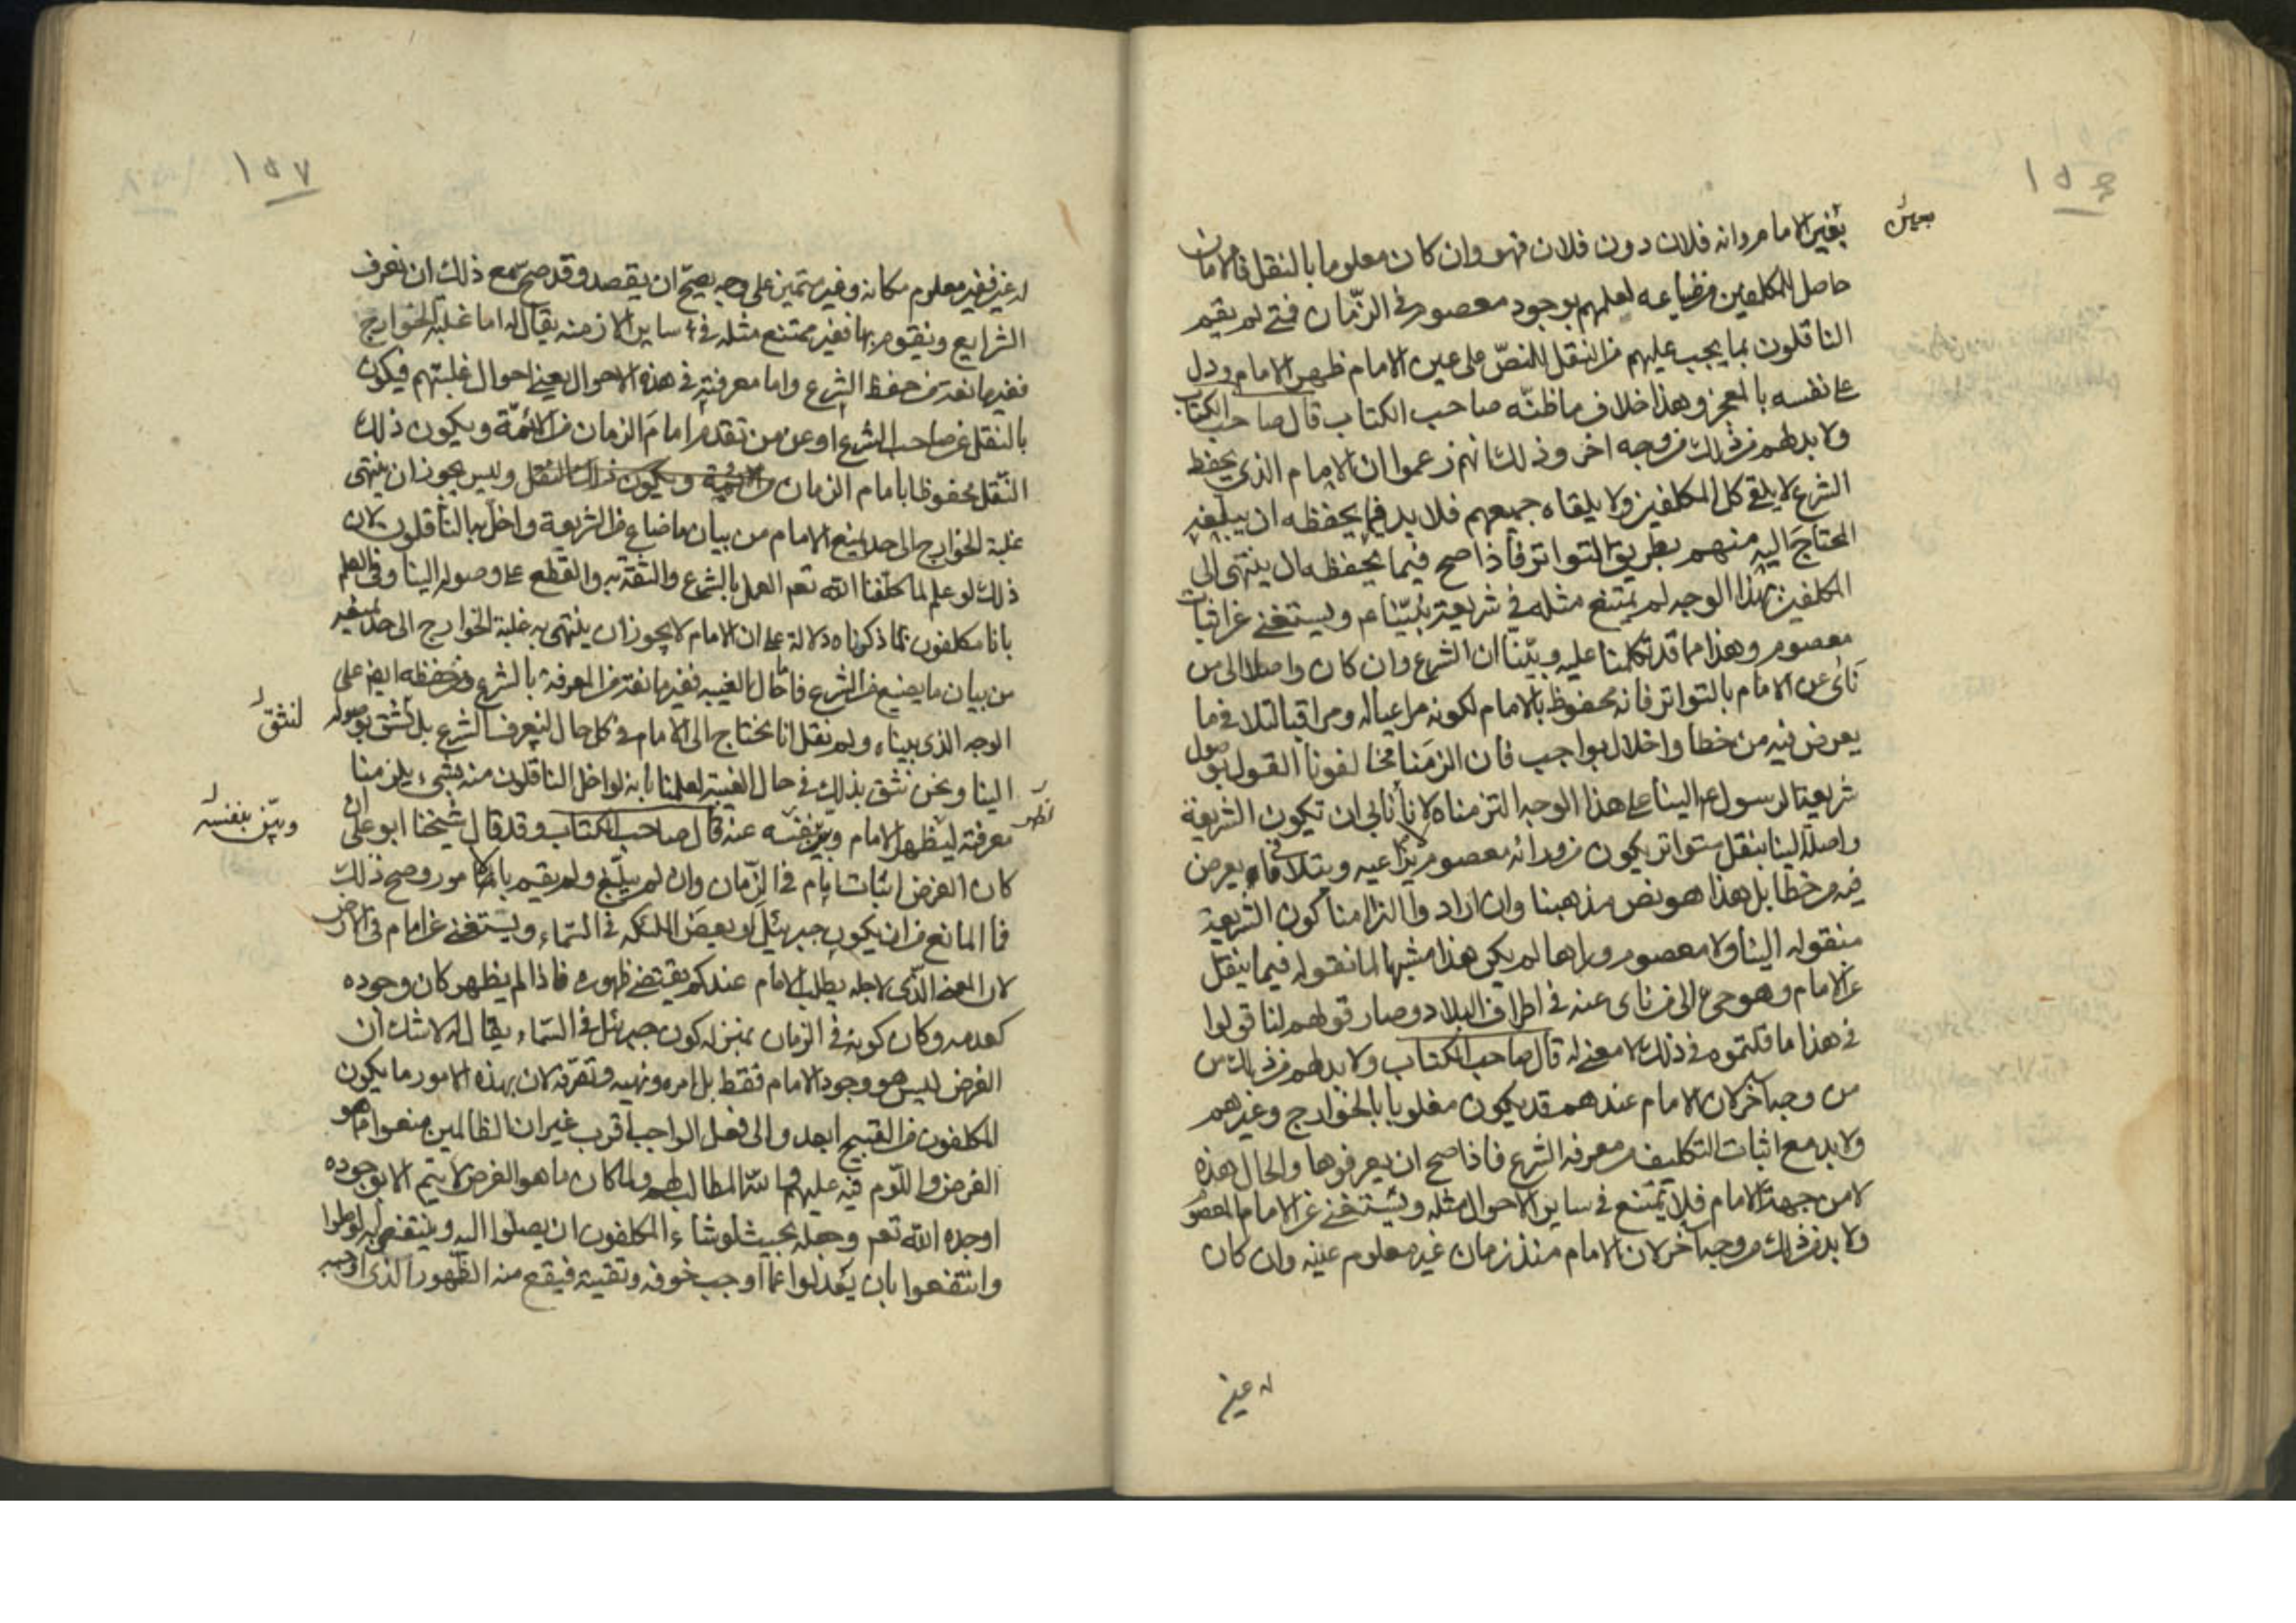 ١٥٦
بعين
بغير الامام وانه فلان دون فلان فهو وان كان معلوما بالنقل فالامان
حاصل للمكلفين من ضياعه لعلمهم بوجود معصوم في الزمان فمتى لم يقيم
الناقلون بما يجب عليهم من النقل للنص على عين الامام ظهر الامام ودل
على نفسه بالمعجز وهذا خلاف ما ظنه صاحب الكتاب قال صاحب الكتاب
ولا بد لهم من ذلك من وجه اخر وذلك انهم زعموا ان الامام الذي يحفظ
الشرع لا يلقى كل المكلفين ولا يلقاه جميعهم فلا بد فيما يحفظه ان يبلغ
المحتاج اليه منهم بطريق التواتر فاذا صح فيما يحفظه ان ينتهى الى
المكلفين بهذا الوجه لم يمتنع مثله في شريعة نبينا عم ويستغنى عن اثبات
معصوم وهذا مما قد تكلمنا عليه وبينا ان الشرع وان كان واصلا الى من
نأى عن الامام بالتواتر فانه محفوظ بالامام لكونه مراعيا له ومراقبا لتلافي ما
يعرض فيه من خطأ واخلال بواجب فان الزمنا مخالفونا القول بوصول
شريعة الرسول عم الينا على هذا الوجه التزمناه لانا لا نابى ان تكون الشريعة
واصلة الينا بنقل متواتر يكون من ورائه معصوم يراعيه ويتلافى ما يعرض
فيه من خطأ بل هذا هو نص مذهبنا وان ارادوا الزامنا كون الشريعة
منقولة الينا ولا معصوم وراها لم يكن هذا مشبها لما نقوله فيما ينقل
عن الامام وهو حي الى من نأى عنه في اطراف البلاد وصار قولهم لنا قولوا
في هذا ما قلتموه في ذلك لا معنى له قال صاحب الكتاب ولا بد لهم من ذلك من
من وجه آخر لان الامام عندهم قد يكون مغلوبا بالخوارج وغيرهم
ولا بد مع اثبات التكليف من معرفة الشرع فاذا صح ان يعرفوها والحال هذه
لا من جهة الامام فلا يمتنع في ساير الاحوال مثله ويستغنى عن الامام المعصوم
ولا بد من ذلك من وجه آخر لان الامام منذ زمان غير معلوم عينه وان كان
له عين
١٥٧
له عين فغير معلوم مكانه وغير متميز على وجه يصح ان يقصد وقد صح مع ذلك ان نعرف
الشرايع ونقوم بها فغير ممتنع مثله في ساير الازمنة يقال له اما غلبة الخوارج
فغير مانعة من حفظ الشرع واما معرفته في هذه الاحوال يعنى احوال غلبتهم فيكون
بالنقل عن صاحب الشرع او عن من تقدم امام الزمان من الائمة ويكون ذلك
النقل محفوظا بامام الزمان من الائمة ويكون ذلك النقل وليس يجوز ان ينتهى
غلبة الخوارج الى حد يمنع الامام من بيان ما ضاع من الشريعة واخل به الناقلون لان
ذلك لو علم لما كلفنا الله تعم العمل بالشرع والثقة به والقطع على وصوله الينا وفي العلم
بانا مكلفون بما ذكرناه دلالة على ان الامام لا يجوز ان ينتهى به غلبة الخوارج الى حد يمنعه
من بيان ما يضيع من الشرع فاما حال الغيبة فغير مانعة من المعرفة بالشرع ومن حفظه ايضا على
الوجه الذي بيناه ولم نقل انا نحتاج الى الامام في كل حال لنعرف الشرع بل لنثق بوصوله
لنثق
الينا ونحن نثق بذلك في حال الغيبة لعلمنا بانه لو اخل الناقلون منه بشيء يلزمنا
معرفته ليظهر الامام وبين بنفسه عنه قال صاحب الكتاب وقد قال شيخنا ابو على ان
وبين بنفسه
كان الغرض اثبات امام في الزمان وان لم يبلغ ولم يقيم بالامور وصح ذلك
فما المانع من ان يكون جبرئيل او بعض الملئكه في السماء ويستغنى عن امام في الارض
لان المعنى الذي لاجله يطلب الامام عندكم يقتضى ظهوره فاذا لم يظهر كان وجوده
كعدمه وكان كونه في الزمان بمنزلة كون جبرئيل في السماء يقال له لا شك ان
الغرض ليس هو وجود الامام فقط بل امره ونهيه وتصرفه لان بهذه الامور ما يكون
المكلفون من القبيح ابعد والى فعل الواجب اقرب غير ان الظالمين منعوا ما هو
الغرض واللوم فيه عليهم والله المطالب لهم ولما كان ما هو الغرض لا يتم الا بوجوده
اوجده الله تعم وجعله بحيث لو شاء المكلفون ان يصلوا اليه وينتفعوا به لوصلوا
وانتفعوا بان يعدلوا عما اوجب خوفه وتقيته فيقع منه الظهور الذي اوجبه